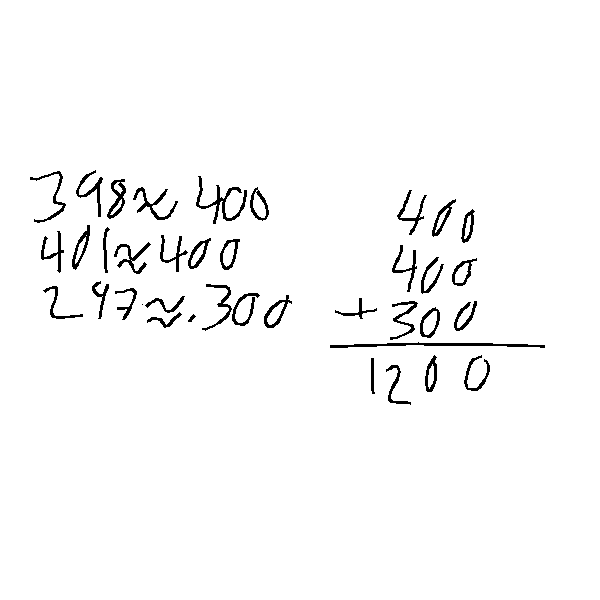 398≈400
401≈400
297≈.300
400
400
+300
1200